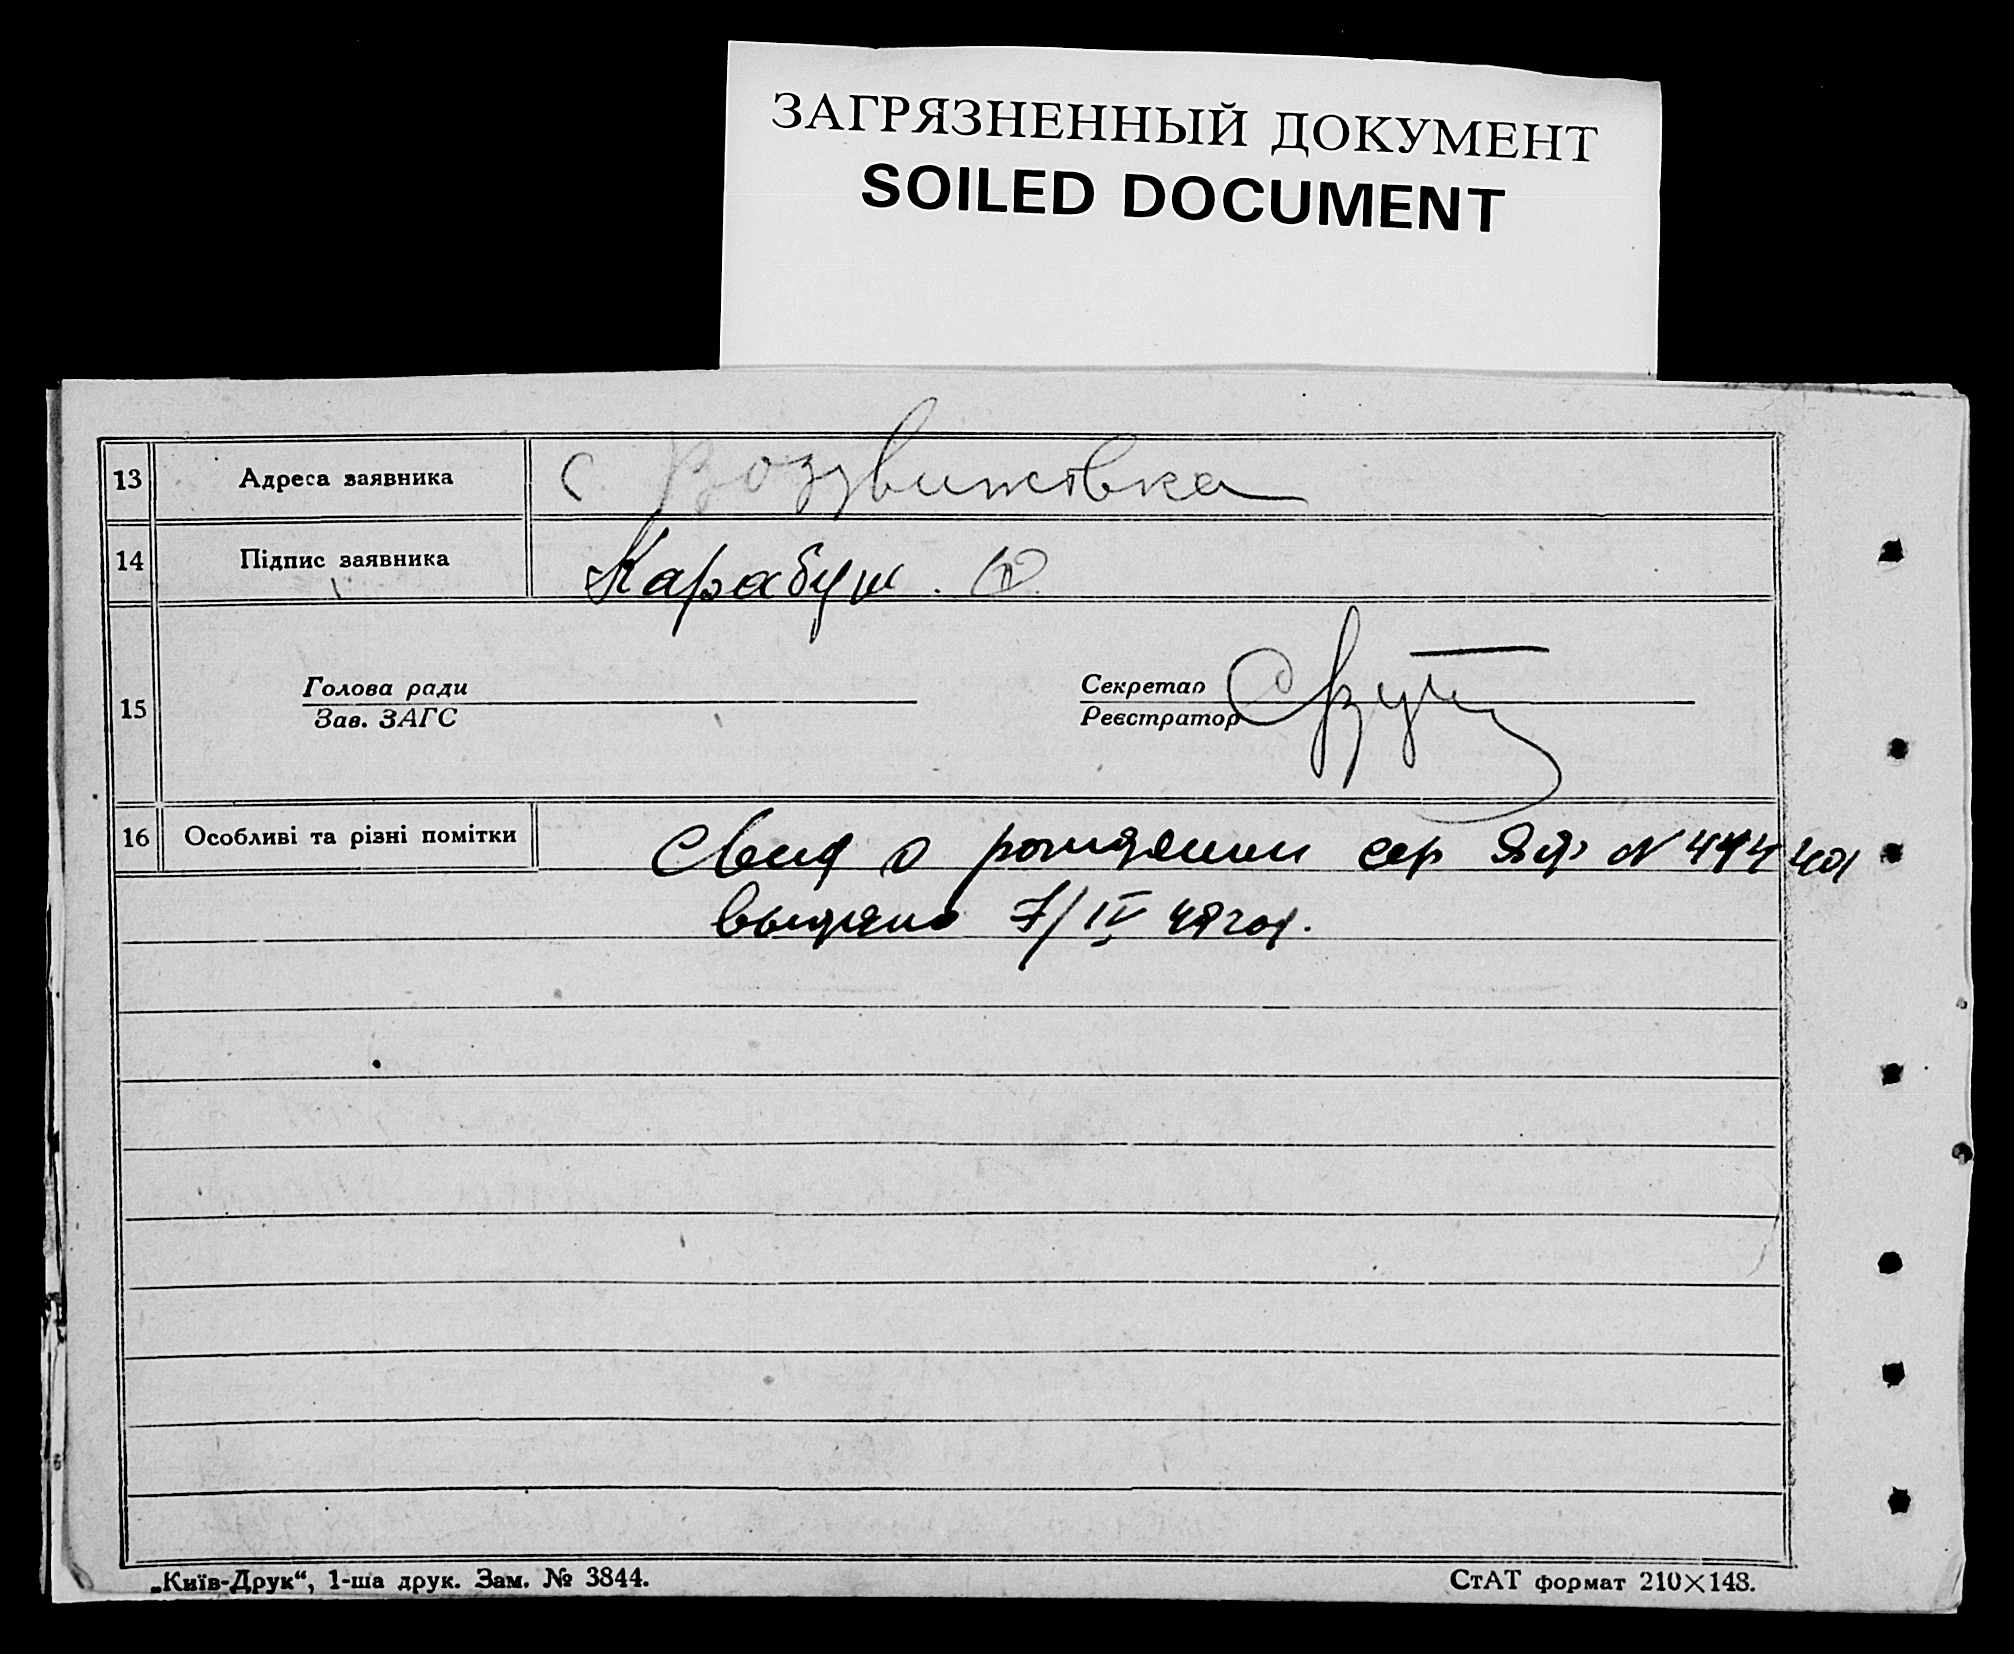 ЗАГРЯЗНЕННЫЙ ДОКУМЕНТ
SOILED DOCUMENT
13 Адреса заявника с Воздвижовка
14 Підпис заявника Карабуш.
15 Голова ради Секретар
Зав. ЗАГС Реєстратор
16 Особливі та різні помітки Свид о рождении сер ЯФ N
выдано 7/IV 49 год.
„Київ-Друк“, 1-ша друк. Зам. № 3844. СтАТ формат 210×148.